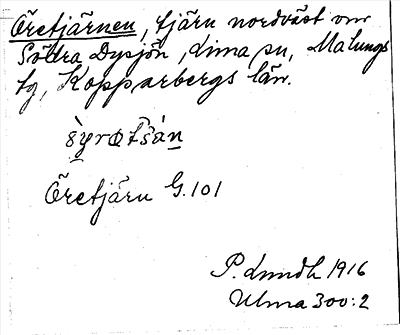 Öretjärnen, tjärn nordväst om
Södra Dysjön, Lima sn, Malungs
tg, Kopparbergs län.
Öretjärn G.101
P. Lundh 1916
Ulma 300:2